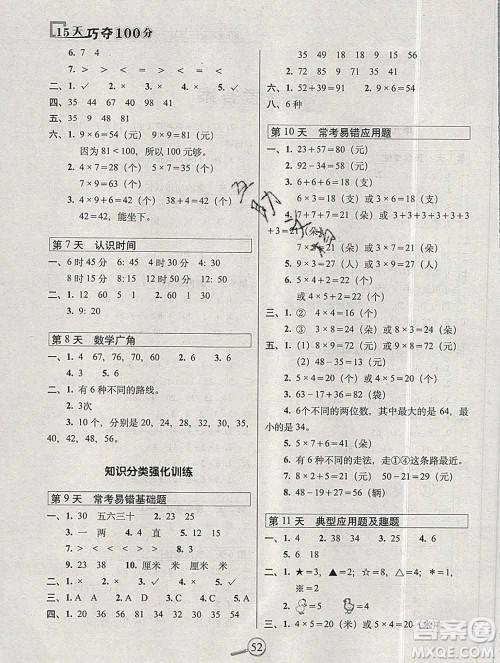 15天巧夺100分
6. 7 4
7. > < = > > =
二、1. ✓ 2. ✓ 3. ✓ 4. ✓
四、35 44 40 67 40 98
五、35 9 48
六、1. 9×6=54(元)
因为81<100,所以100元够。
2. 4×7=28(个) 5×7=35(个)
7×9=63(个)
3. 4×9+6=42(个) 38+4=42(个)
42=42,能坐下。
第7天 认识时间
一、6时45分 3时50分 4时30分
8时15分 12时30分 9时45分
二、1. 60 30 12 1 2. 12 5
3. 9:20
第8天 数学广角
一、1. 4 67,76,70,60 2. 6 3. 6
4. 30
二、1. 有6种不同的路线。
2. 3次
3. 10个,分别是20,24,28,30,32,
35,40,40,48,56。
知识分类强化训练
第9天 常考易错基础题
一、1. 30 五六三十 2. 20 27
3. 一 两 4. 3 1 2 5. 4 3
6. < < = > < >
7. 9 28 18
8. 9 23 38 9. 厘米 米 厘米
二、1. ✓ 2. ✓ 3. ✓ 4. ✓
三、1. A A 2. A 3. D 4. D
四、1. 30 90 13 63 20 36
2. 35 97 16 83 26 55
六、1. 52+39=91 2. 36-28=8
八、6种
第10天 常考易错应用题
一、1. 23+57=80(元)
2. 92-34=58(元)
3. 6+6+6=18(支)
或3×6=18(支)
4. 7+7+7=21(朵) 3+3+3+3+3+3
+3=21(朵)
7×3=21(朵) 或3×7=21(朵)
5. 9×3=27(人) 或3×9=27(人)
6. 5×4+2=22(个)
或4×5+2=22(个)
三、1. ② 4×3=12(朵) 或3×4=12(朵)
五、1. (1) 57-28=29(元)
(2) 48-35=13(元)
2. 8×4=32(朵) 或4×8=32(朵)
3. 63-17-32=14(个)
4. 6个不同的两位数,其中最大的是64,
最小的是34。
5. 7×6-4=38(个)
6. 5×7+6=41(元)
7. 有6种不同的走法,走①④这条路最近。
8. 9×8-16=56(辆)
第11天 典型应用题及趣题
一、1. ★=5 ▲=4 ●=2 ✳=3
※=0
二、1. 4×5=20(朵) 或5×4=20(朵)
52